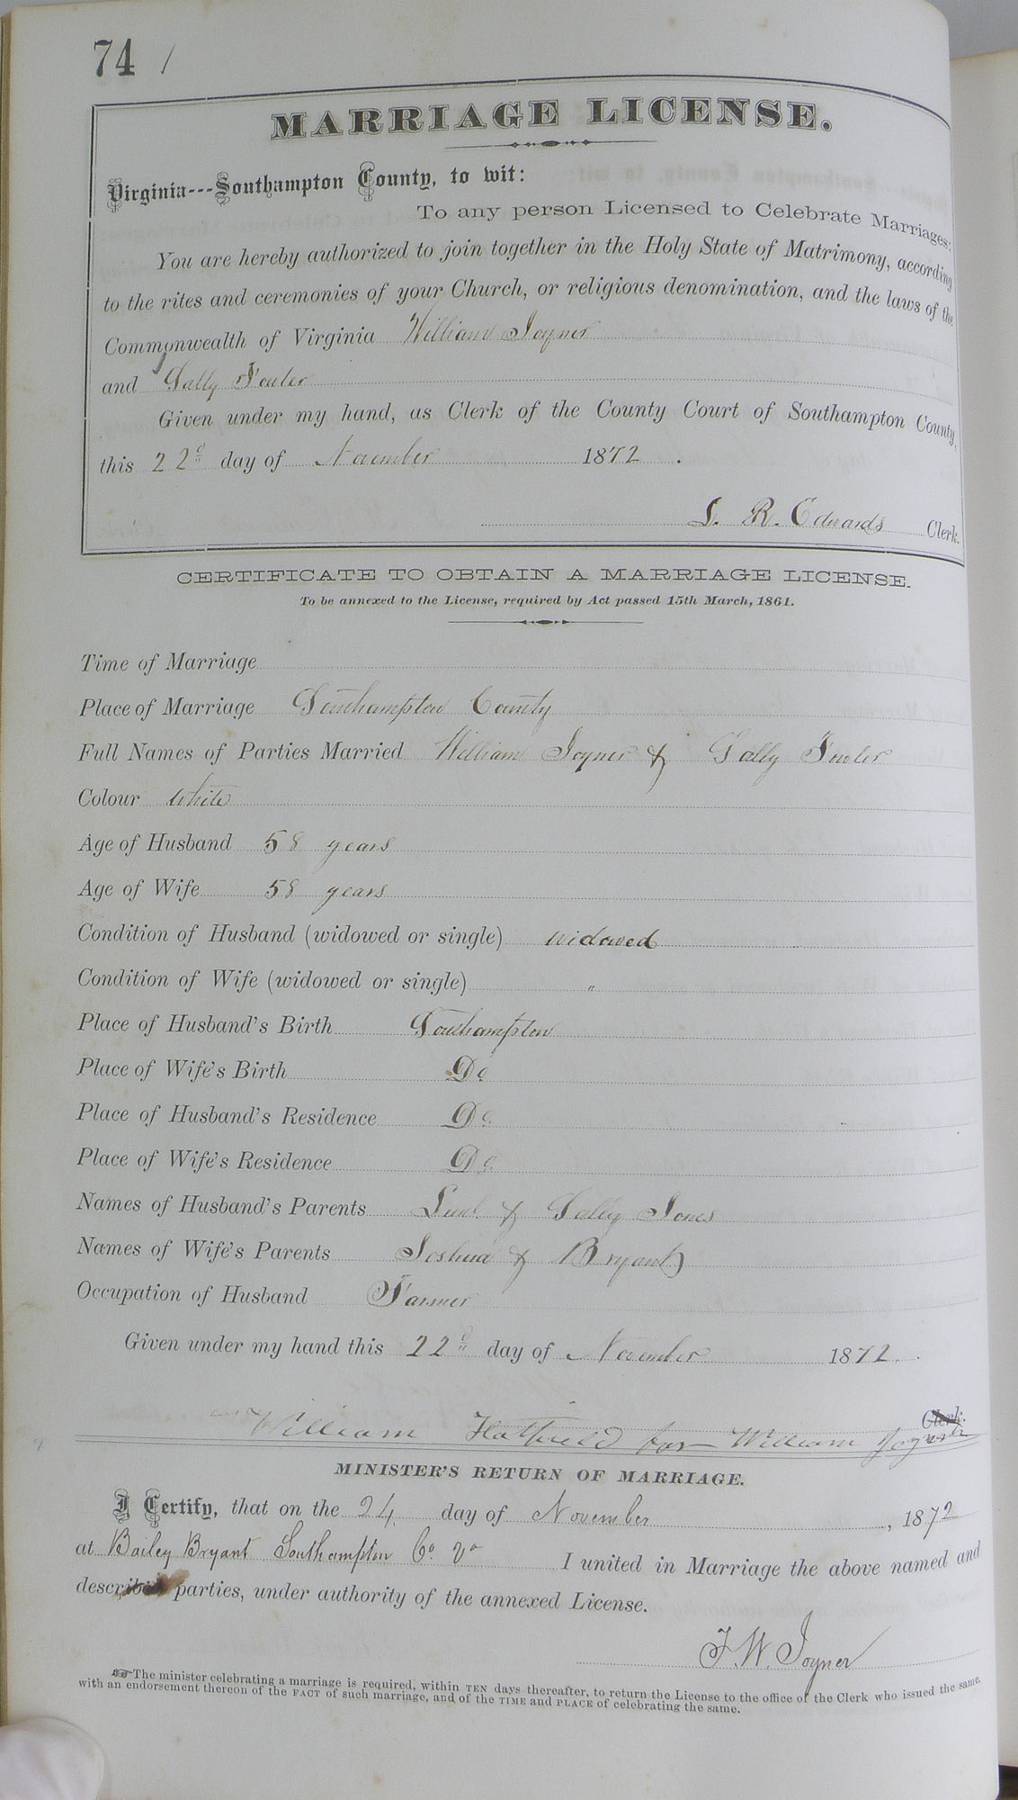 74 /
MARRIAGE LICENSE.
Virginia---Southampton County, to wit:
To any person Licensed to Celebrate Marriages:
You are hereby authorized to join together in the Holy State of Matrimony, according
to the rites and ceremonies of your Church, or religious denomination, and the laws of the
Commonwealth of Virginia William Joyner
and Sally Fowler
Given under my hand, as Clerk of the County Court of Southampton County,
this 22d day of November 1872.
L. R. Edwards Clerk.
CERTIFICATE TO OBTAIN A MARRIAGE LICENSE.
To be annexed to the License, required by Act passed 15th March, 1861.
Time of Marriage
Place of Marriage Southampton County
Full Names of Parties Married William Joyner & Sally Fowler
Colour White
Age of Husband 58 years
Age of Wife 58 years
Condition of Husband (widowed or single) widowed
Condition of Wife (widowed or single) "
Place of Husband's Birth Southampton
Place of Wife's Birth Do
Place of Husband's Residence Do
Place of Wife's Residence Do
Names of Husband's Parents & Sally Jones
Names of Wife's Parents Joshua & Bryant
Occupation of Husband Farmer
Given under my hand this 22d day of November 1872.
Clerk.
William Hatfield for William Joyner
MINISTER'S RETURN OF MARRIAGE.
I Certify, that on the 24 day of November, 1872
at Bailey Bryant Southampton Co Va I united in Marriage the above named and
described parties, under authority of the annexed License.
J. W. Joyner
☞ The minister celebrating a marriage is required, within TEN days thereafter, to return the License to the office of the Clerk who issued the same,
with an endorsement thereon of the FACT of such marriage, and of the TIME and PLACE of celebrating the same.